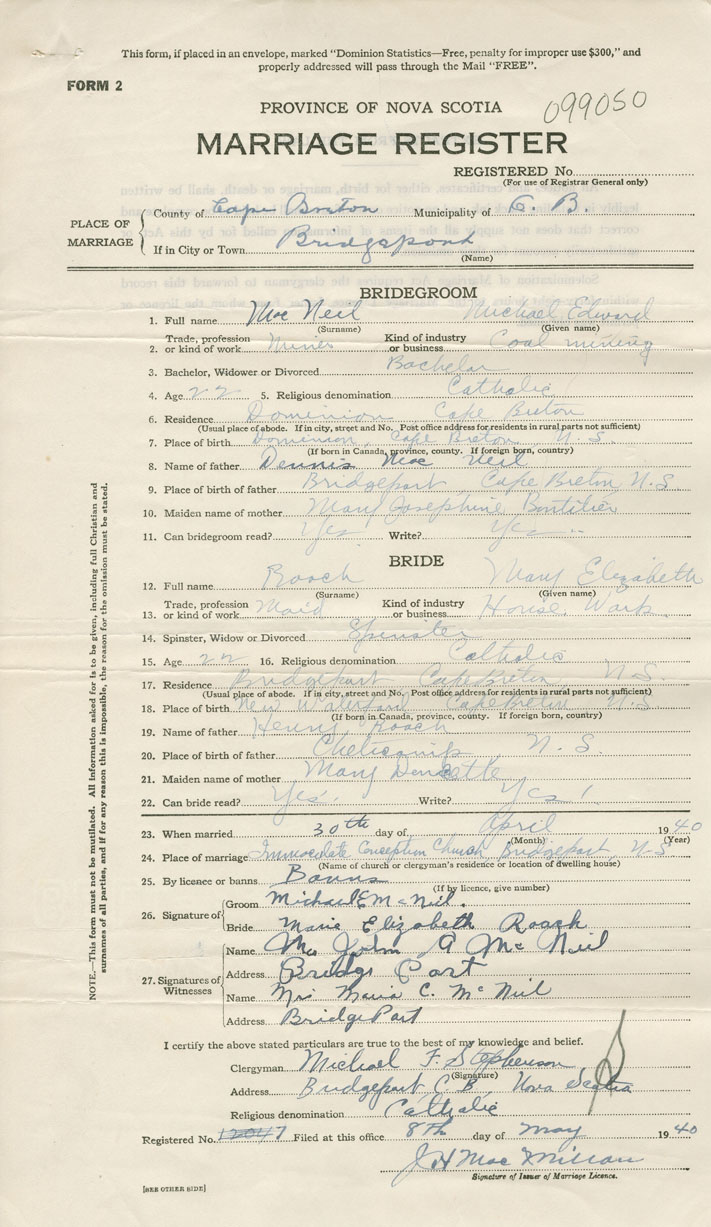 This form, if placed in an envelope, marked "Dominion Statistics—Free, penalty for improper use $300," and
properly addressed will pass through the Mail "FREE".
FORM 2
PROVINCE OF NOVA SCOTIA
099050
MARRIAGE REGISTER
REGISTERED No.
(For use of Registrar General only)
PLACE OF MARRIAGE
County of Cape Breton Municipality of C. B.
If in City or Town Bridgeport
(Name)
BRIDEGROOM
1. Full name Mac Neil Michael Edward
(Surname) (Given name)
2. Trade, profession or kind of work Miner Kind of industry or business Coal mining
3. Bachelor, Widower or Divorced Bachelor
4. Age 22 5. Religious denomination Catholic
6. Residence Dominion Cape Breton
(Usual place of abode. If in city, street and No. Post office address for residents in rural parts not sufficient)
7. Place of birth Dominion, Cape Breton N. S.
(If born in Canada, province, county. If foreign born, country)
8. Name of father Dennis Mac Neil
9. Place of birth of father Bridgeport Cape Breton N.S.
10. Maiden name of mother Mary Josephine Boutilier
11. Can bridegroom read? Yes Write? Yes
BRIDE
12. Full name Roach Mary Elizabeth
(Surname) (Given name)
13. Trade, profession or kind of work Maid Kind of industry or business House Work
14. Spinster, Widow or Divorced Spinster
15. Age 22 16. Religious denomination Catholic
17. Residence Bridgeport Cape Breton N.S.
(Usual place of abode. If in city, street and No. Post office address for residents in rural parts not sufficient)
18. Place of birth New Waterford Cape Breton N.S
(If born in Canada, province, county. If foreign born, country)
19. Name of father Henry Roach
20. Place of birth of father N. S.
21. Maiden name of mother Mary
22. Can bride read? Yes! Write? Yes!
23. When married 30th day of April 1940
(Month) (Year)
24. Place of marriage Immaculate Conception Church Bridgeport, N.S
(Name of church or clergyman's residence or location of dwelling house)
25. By licence or banns Banns
(If by licence, give number)
26. Signature of
Groom Michael E McNeil.
Bride Marie Elizabeth Roach
27. Signatures of Witnesses
Name John A McNeil
Address Bridge Port
Name Mrs Maria C. McNeil
Address Bridge Port
I certify the above stated particulars are true to the best of my knowledge and belief.
Clergyman Michael F. Stephenson
(Signature)
Address Bridgeport C.B., Nova Scotia
Religious denomination Catholic
Registered No. 12047 Filed at this office 8th day of May 1940
J H Mac Millan
Signature of Issuer of Marriage Licence.
[SEE OTHER SIDE]
NOTE.—This form must not be mutilated. All information asked for is to be given, including full Christian and
surnames of all parties, and if for any reason this is impossible, the reason for the omission must be stated.